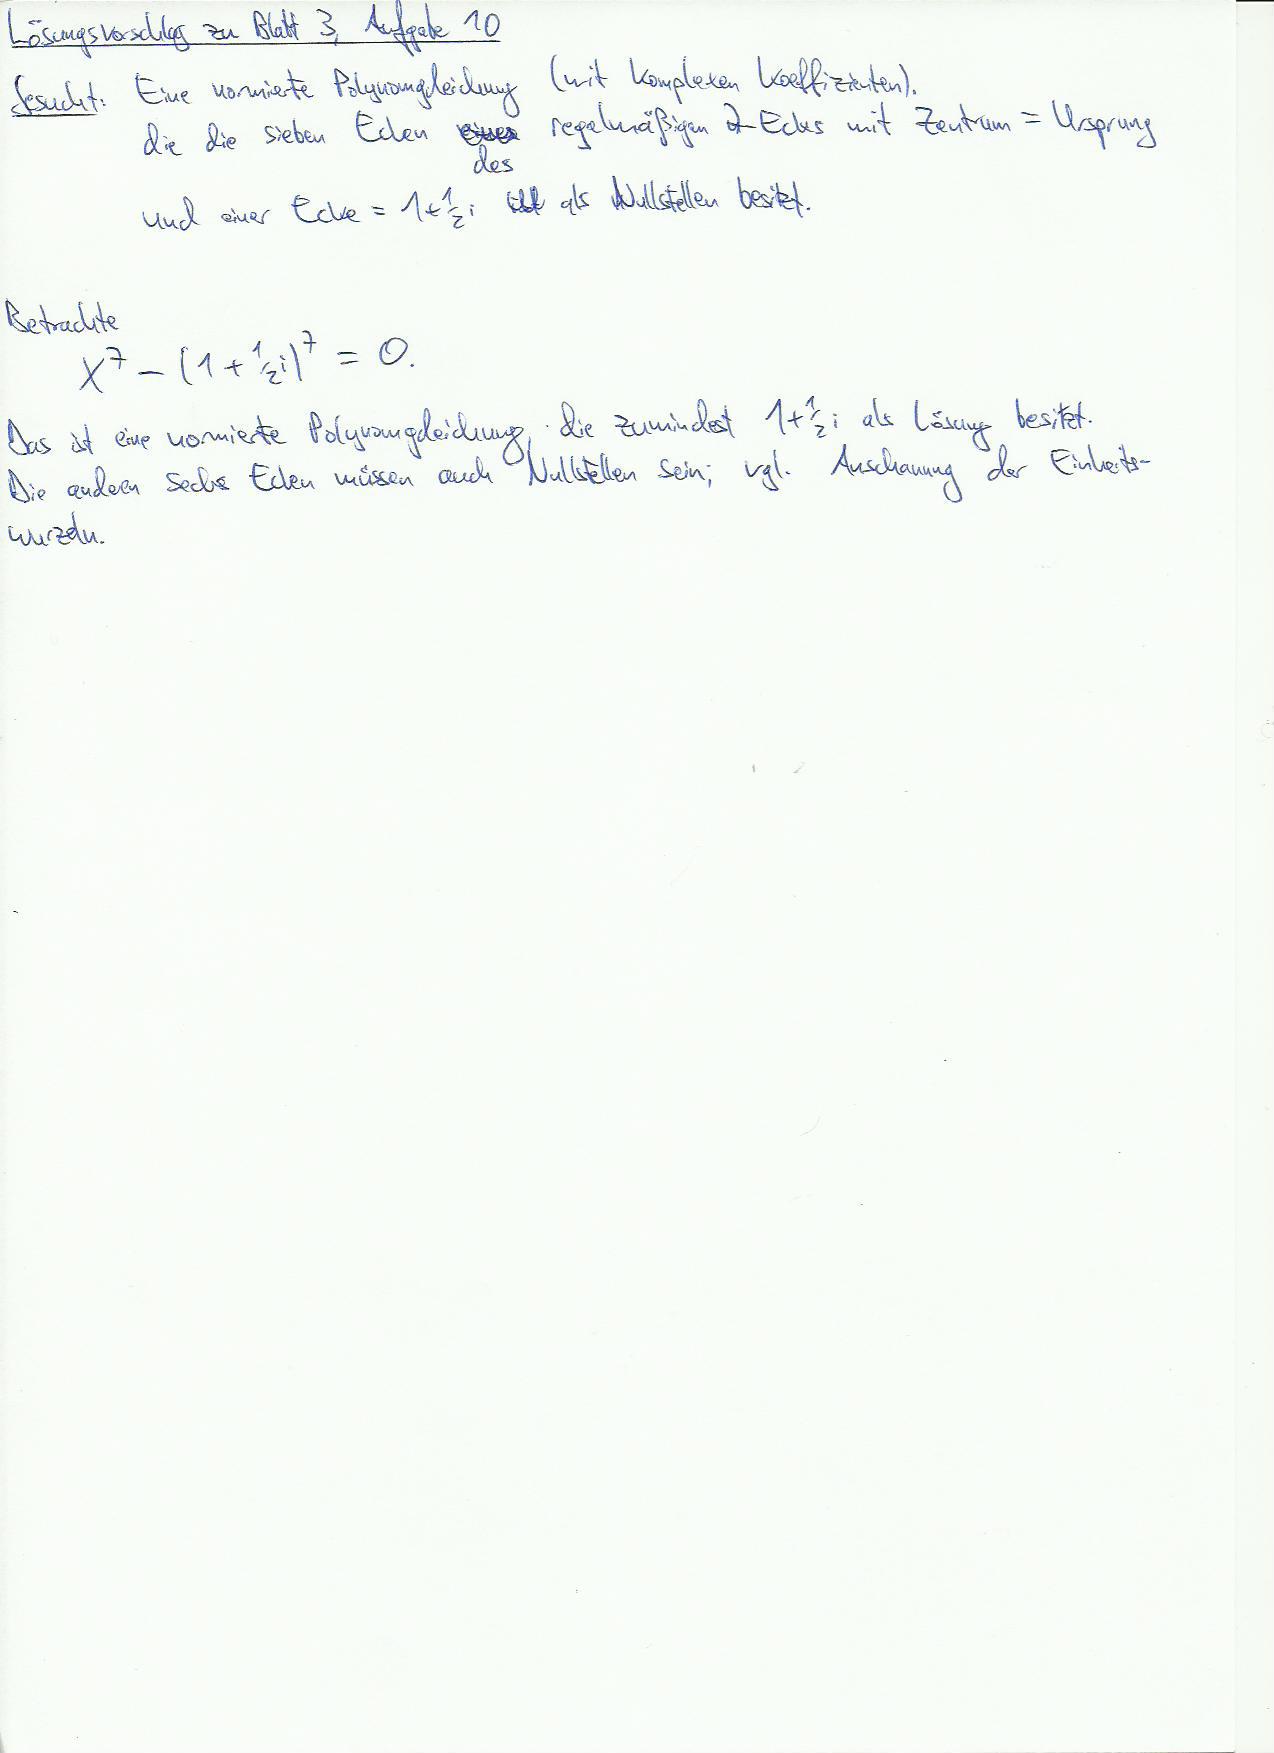 Lösungsvorschlag zu Blatt 3, Aufgabe 10
Gesucht: Eine normierte Polynomgleichung (mit komplexen Koeffizienten),
die die sieben Ecken eines regelmäßigen 7-Ecks mit Zentrum = Ursprung
des
und einer Ecke = 1+½i als Nullstellen besitzt.
Betrachte
X⁷ – (1+½i)⁷ = 0.
Das ist eine normierte Polynomgleichung, die zumindest 1+½i als Lösung besitzt.
Die andern sechs Ecken müssen auch Nullstellen sein; vgl. Anschauung der Einheits-
wurzeln.